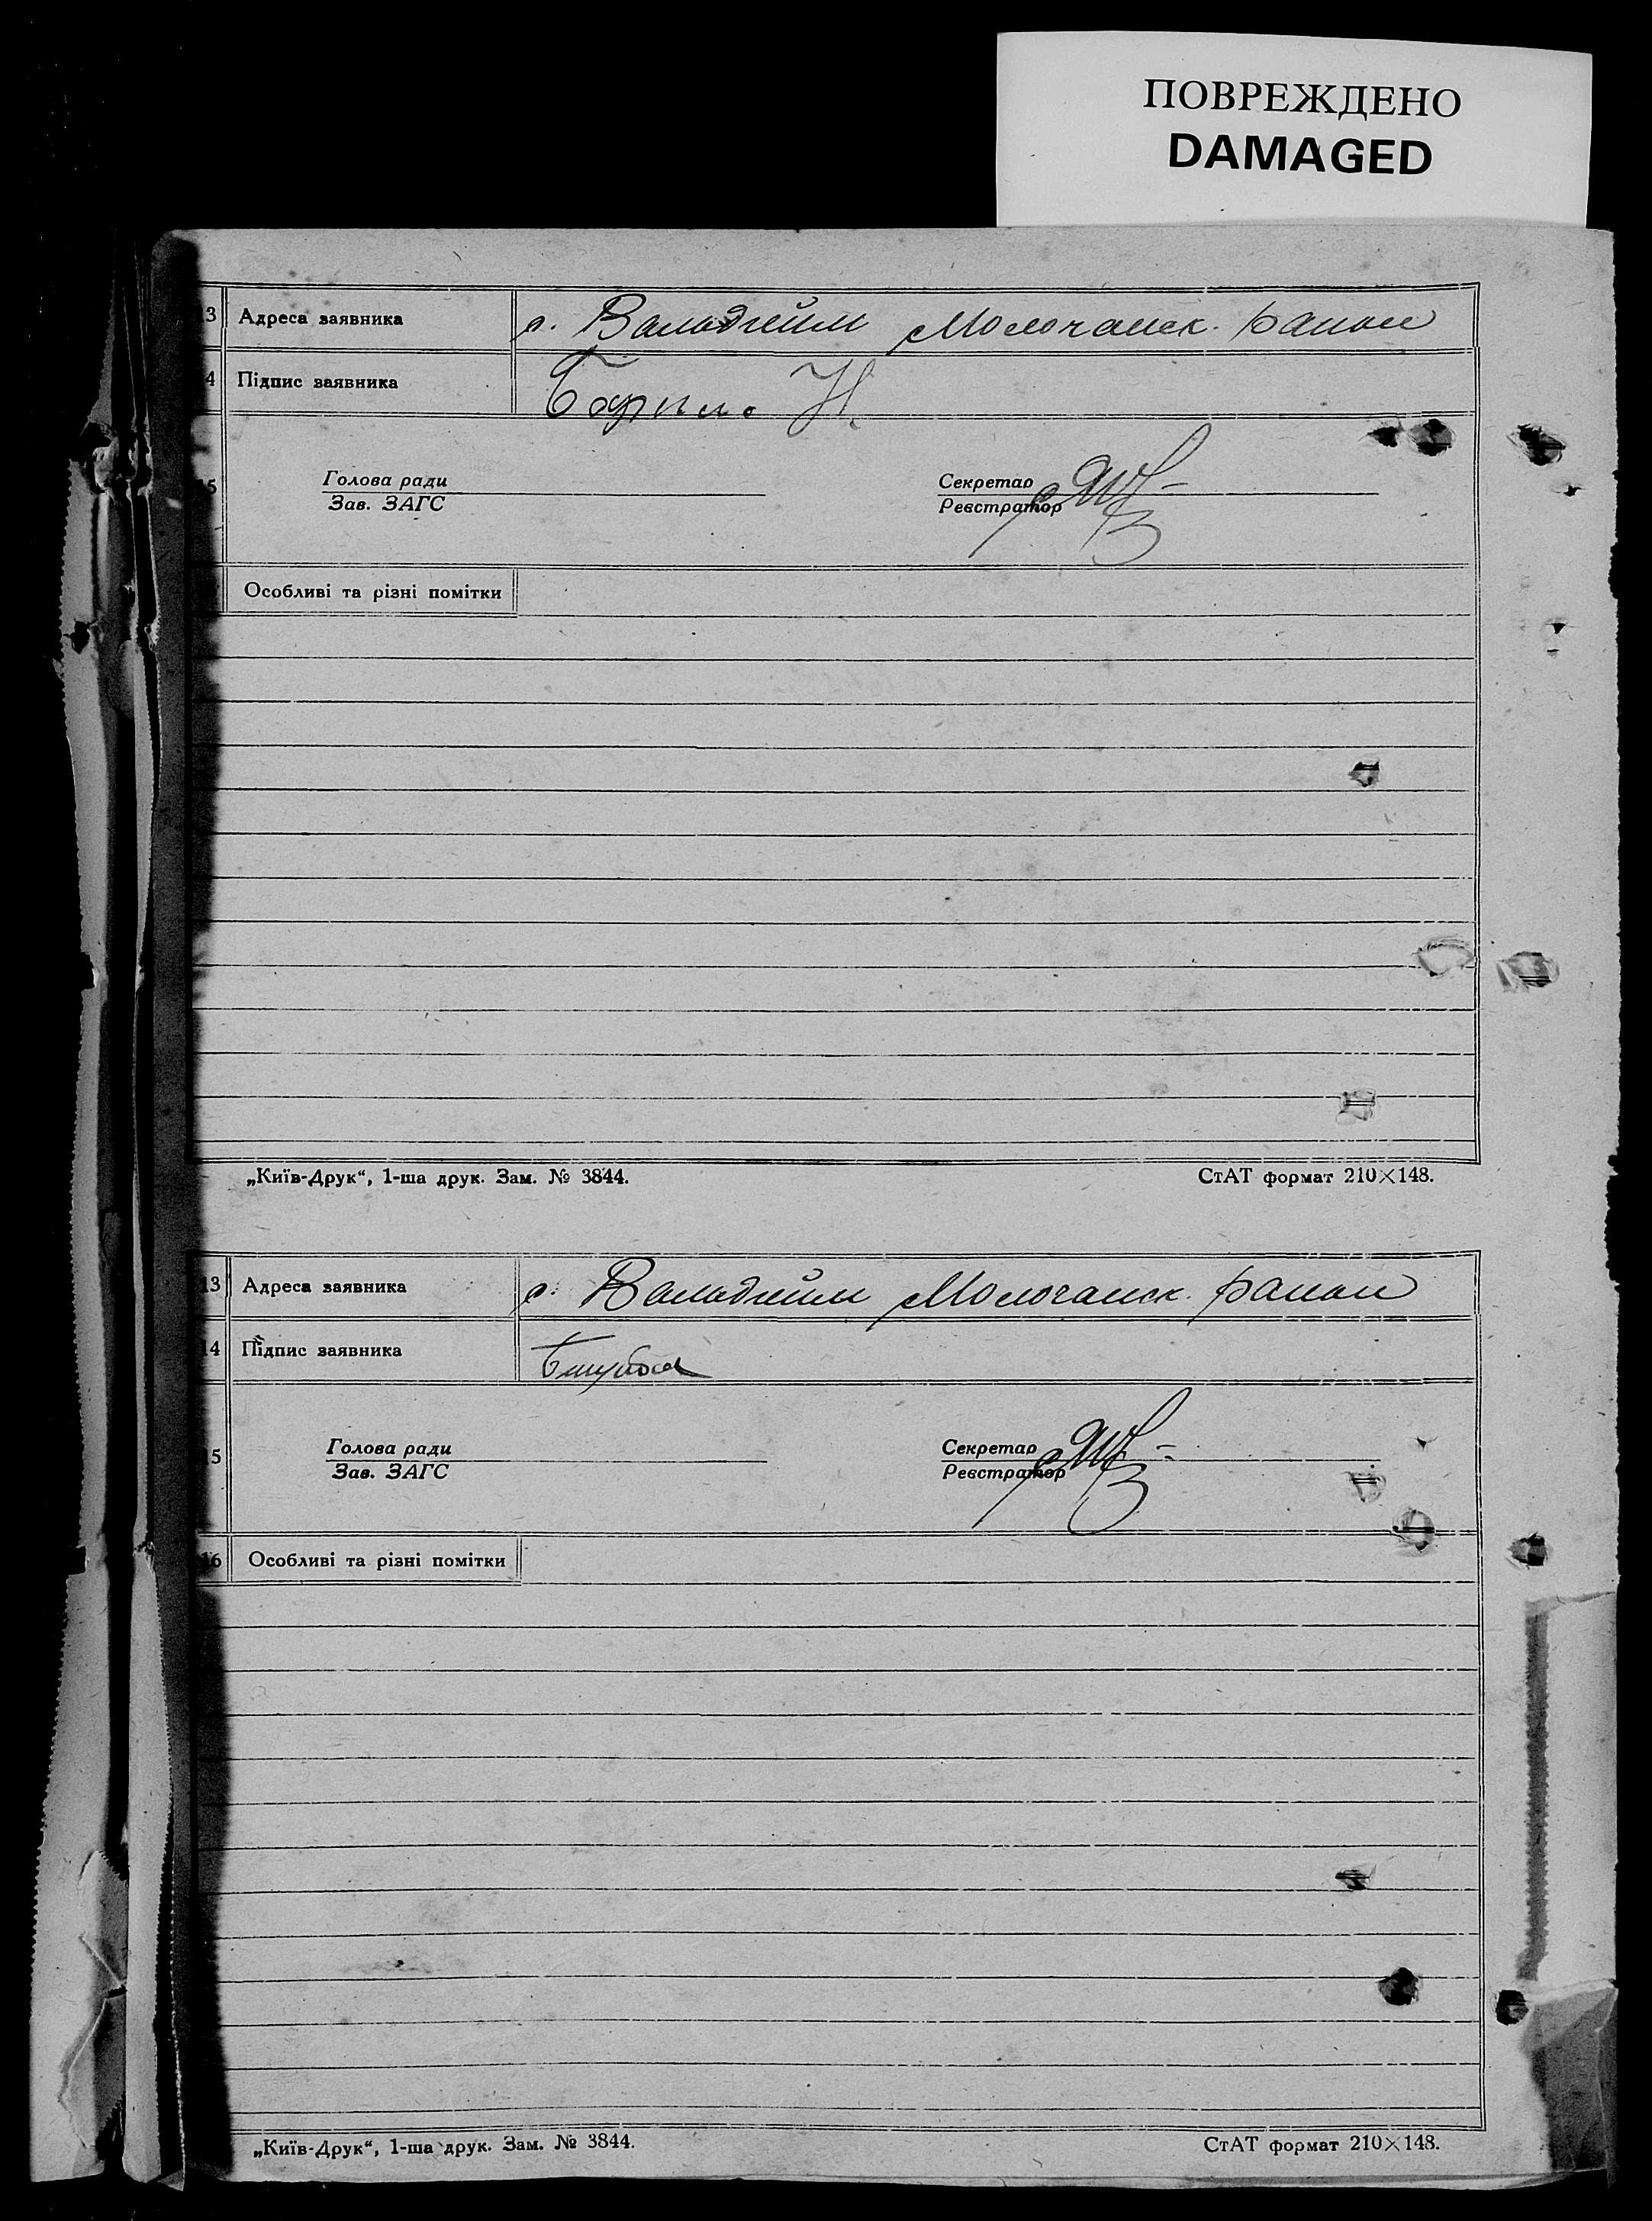 ПОВРЕЖДЕНО
DAMAGED
13 Адреса заявника с. Вальдгейм Молочанск. району
14 Підпис заявника
15 Голова ради Секретар
Зав. ЗАГС Реєстратор
Особливі та різні помітки
„Київ-Друк“, 1-ша друк. Зам. № 3844. СтАТ формат 210×148.
13 Адреса заявника с. Вальдгейм Молочанск. району
14 Підпис заявника
15 Голова ради Секретар
Зав. ЗАГС Реєстратор
16 Особливі та різні помітки
„Київ-Друк“, 1-ша друк. Зам. № 3844. СтАТ формат 210×148.